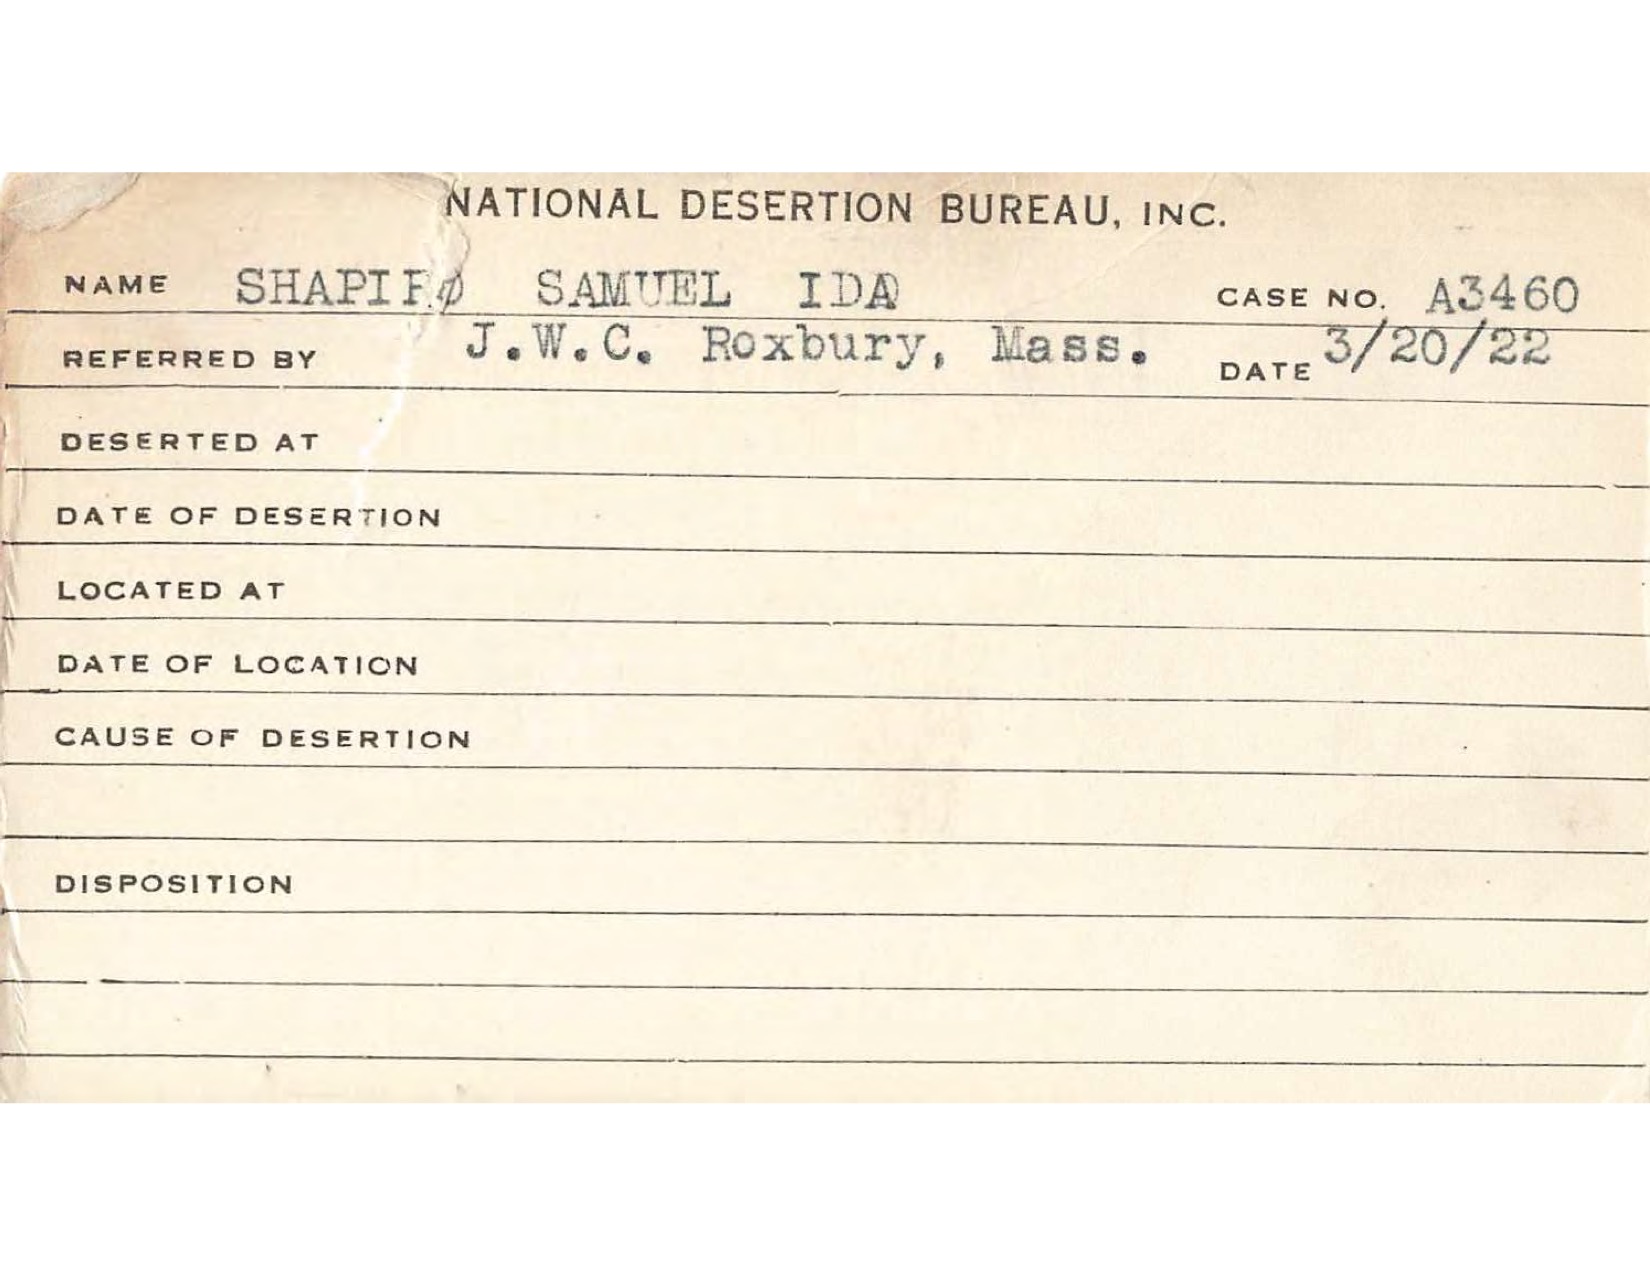 NATIONAL DESERTION BUREAU, INC.
NAME SHAPIRO SAMUEL IDA CASE NO. A3460
REFERRED BY J.W.C. Roxbury, Mass. DATE 3/20/22
DESERTED AT
DATE OF DESERTION
LOCATED AT
DATE OF LOCATION
CAUSE OF DESERTION
DISPOSITION